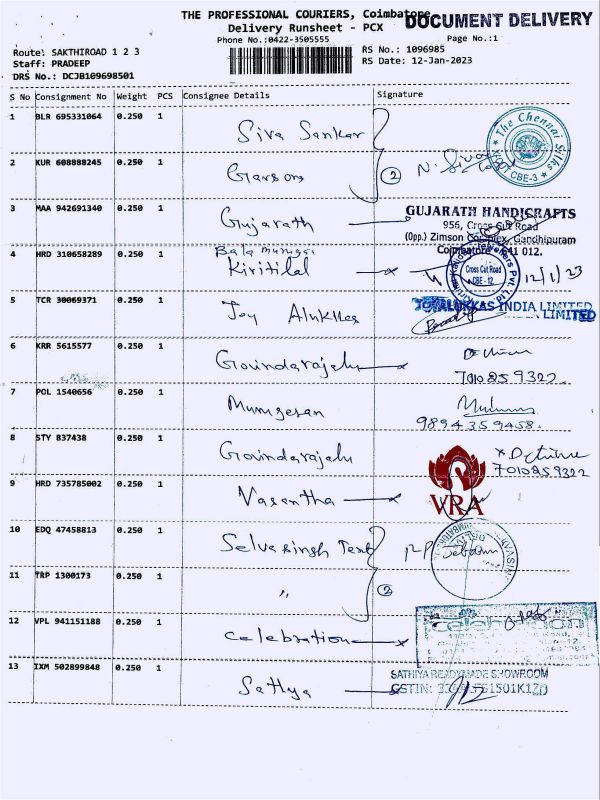 THE PROFESSIONAL COURIERS, Coimbatore
DOCUMENT DELIVERY
Delivery Runsheet - PCX
Phone No.:0422-3505555
Page No.:1
Route: SAKTHIROAD 1 2 3
RS No.: 1096985
Staff: PRADEEP
RS Date: 12-Jan-2023
DRS No.: DCJB109698501
S No Consignment No Weight PCS Consignee Details Signature
1 BLR 695331064 0.250 1 Siva Sankar
The Chennai Silks
CBE-3
2 KUR 608888245 0.250 1 Garsons 2 N. Siva
3 MAA 942691340 0.250 1 Gujarath
GUJARATH HANDICRAFTS
956, Cross Cut Road
(Opp.) Zimson Complex, Gandhipuram
Coimbatore - 641 012.
4 HRD 310658289 0.250 1 Bala murugan
Kiritilal
Cross Cut Road
CBE - 12
12/1/23
5 TCR 30069371 0.250 1 Joy Alukkas
JOYALUKKAS INDIA LIMITED
6 KRR 5615577 0.250 1 Govindarajalu
7010859322.
7 POL 1540656 0.250 1 Murugesan
9894359458.
8 STY 837438 0.250 1 Govindarajalu
7010859322
9 HRD 735785002 0.250 1 Vasantha
VRA
10 EDQ 47458813 0.250 1 Selvasingh Text
11 TRP 1300173 0.250 1 " 2
12 VPL 941151188 0.250 1 Celebration
Celebration
13 IXM 502899848 0.250 1 Sathya
SATHIYA READYMADE SHOWROOM